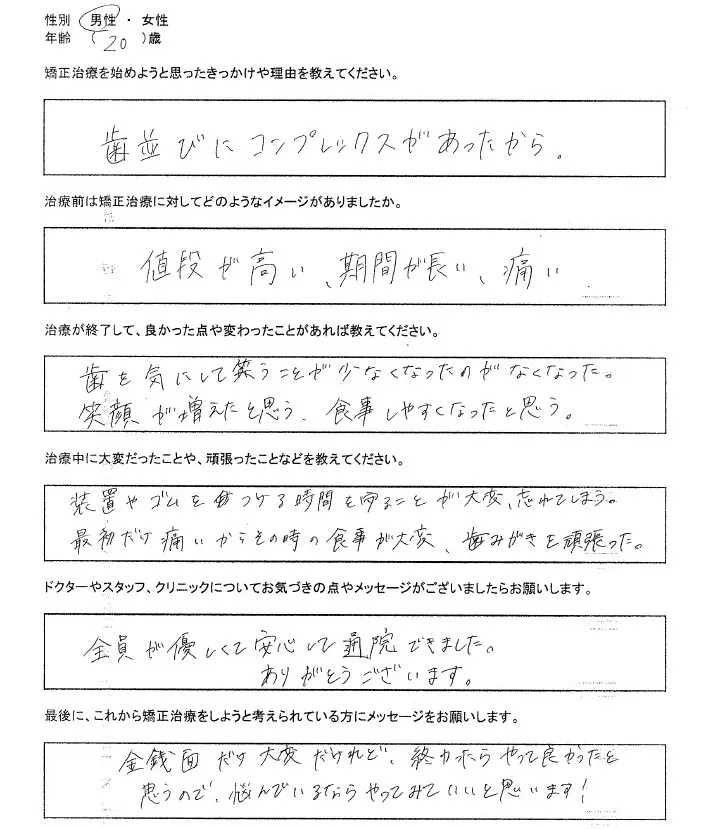 性別 男性 ・ 女性
年齢 ( 20 )歳
矯正治療を始めようと思ったきっかけや理由を教えてください。
歯並びにコンプレックスがあったから。
治療前は矯正治療に対してどのようなイメージがありましたか。
値段が高い、期間が長い、痛い
治療が終了して、良かった点や変わったことがあれば教えてください。
歯を気にして笑うことが少なくなったのがなくなった。
笑顔が増えたと思う、食事しやすくなったと思う。
治療中に大変だったことや、頑張ったことなどを教えてください。
装置やゴムをつける時間を守ることが大変、忘れてしまう。
最初だけ痛いからその時の食事が大変、歯みがきを頑張った。
ドクターやスタッフ、クリニックについてお気づきの点やメッセージがございましたらお願いします。
全員が優しくて安心して通院できました。
ありがとうございます。
最後に、これから矯正治療をしようと考えられている方にメッセージをお願いします。
金銭面だけ大変だけれど、終わったらやって良かったと
思うので、悩んでいるならやってみていいと思います!